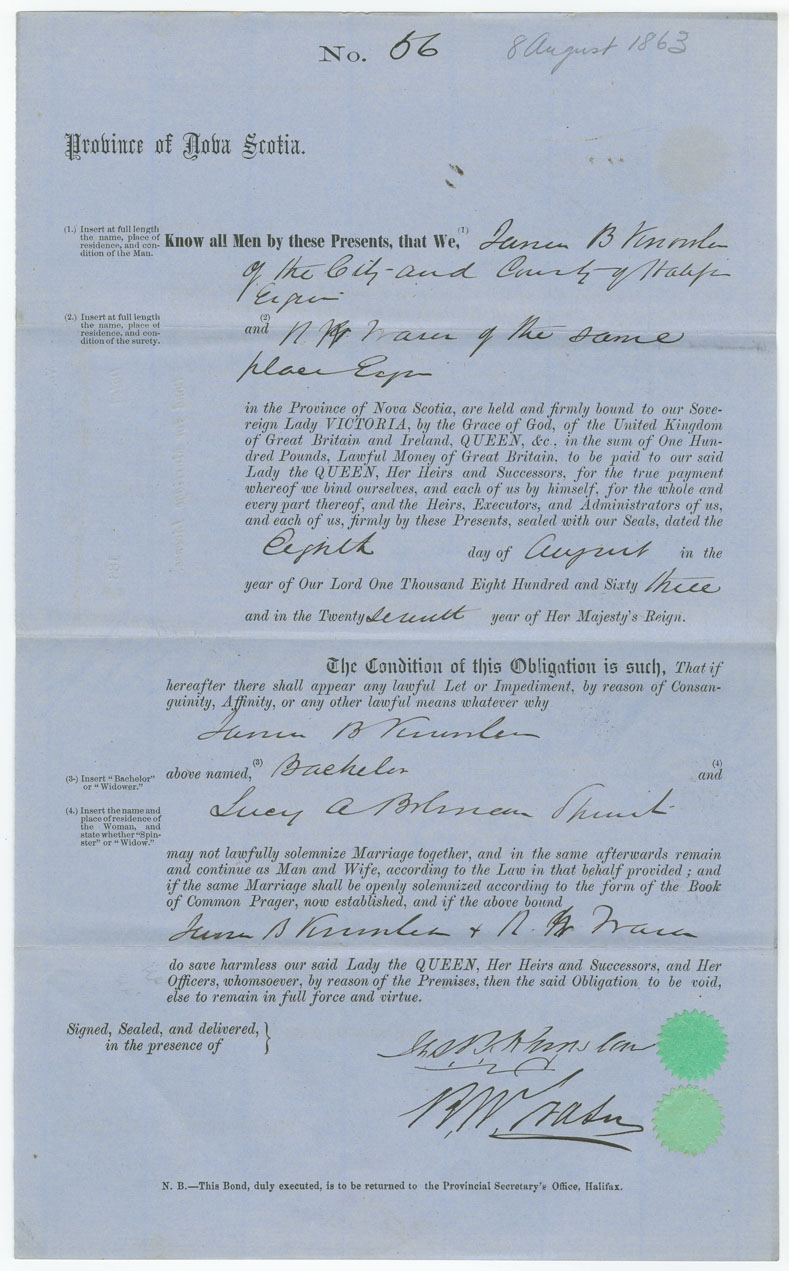 No. 56
8 August 1863
Province of Nova Scotia.
(1.) Insert at full length
the name, place of
residence, and con-
dition of the Man.
Know all Men by these Presents, that We, (1) James B Knowlan
of the City and County of Halifax
Esquire
(2.) Insert at full length
the name, place of
residence, and con-
dition of the surety.
and (2) R W Fraser of the same
place Esqr
in the Province of Nova Scotia, are held and firmly bound to our Sove-
reign Lady VICTORIA, by the Grace of God, of the United Kingdom
of Great Britain and Ireland, QUEEN, &c. in the sum of One Hun-
dred Pounds, Lawful Money of Great Britain, to be paid to our said
Lady the QUEEN, Her Heirs and Successors, for the true payment
whereof we bind ourselves, and each of us by himself, for the whole and
every part thereof, and the Heirs, Executors, and Administrators of us,
and each of us, firmly by these Presents, sealed with our Seals, dated the
Eighth day of August in the
year of Our Lord One Thousand Eight Hundred and Sixty three
and in the Twenty seventh year of Her Majesty's Reign.
The Condition of this Obligation is such, That if
hereafter there shall appear any lawful Let or Impediment, by reason of Consan-
guinity, Affinity, or any other lawful means whatever why
James B Knowlan
(3-) Insert "Bachelor"
or "Widower."
above named, (3) Bachelor (4) and
(4.) Insert the name and
place of residence of
the Woman, and
state whether "Spin-
ster" or "Widow."
Lucy A Bolman Spinst
may not lawfully solemnize Marriage together, and in the same afterwards remain
and continue as Man and Wife, according to the Law in that behalf provided; and
if the same Marriage shall be openly solemnized according to the form of the Book
of Common Prager, now established, and if the above bound
James B Knowlan & R. W Fraser
do save harmless our said Lady the QUEEN, Her Heirs and Successors, and Her
Officers, whomsoever, by reason of the Premises, then the said Obligation to be void,
else to remain in full force and virtue.
Signed, Sealed, and delivered,
in the presence of
Jas. B. Knowlan
R. W. Fraser
N. B.—This Bond, duly executed, is to be returned to the Provincial Secretary's Office, Halifax.